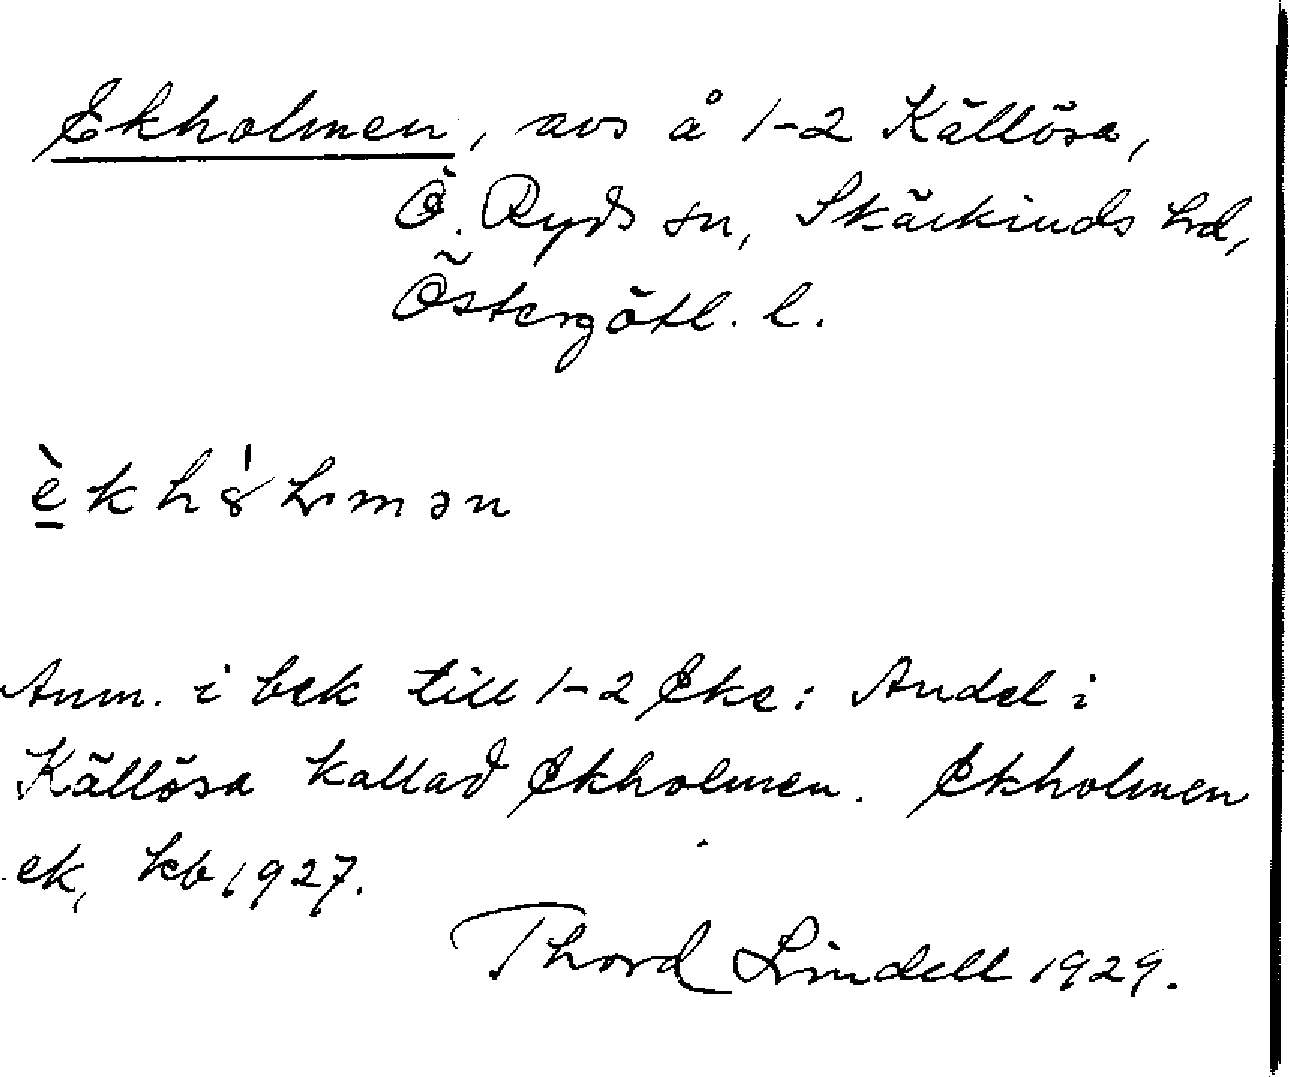 Ekholmen, avs å 1-2 Källösa,
Ö. Ryds sn, Skärkinds hd,
Östergötl. l.
Anm. i bek till 1-2 Eke: Andel i
Källösa kallad Ekholmen. Ekholmen
ek, kb 1927.
Thord Lindell 1929.